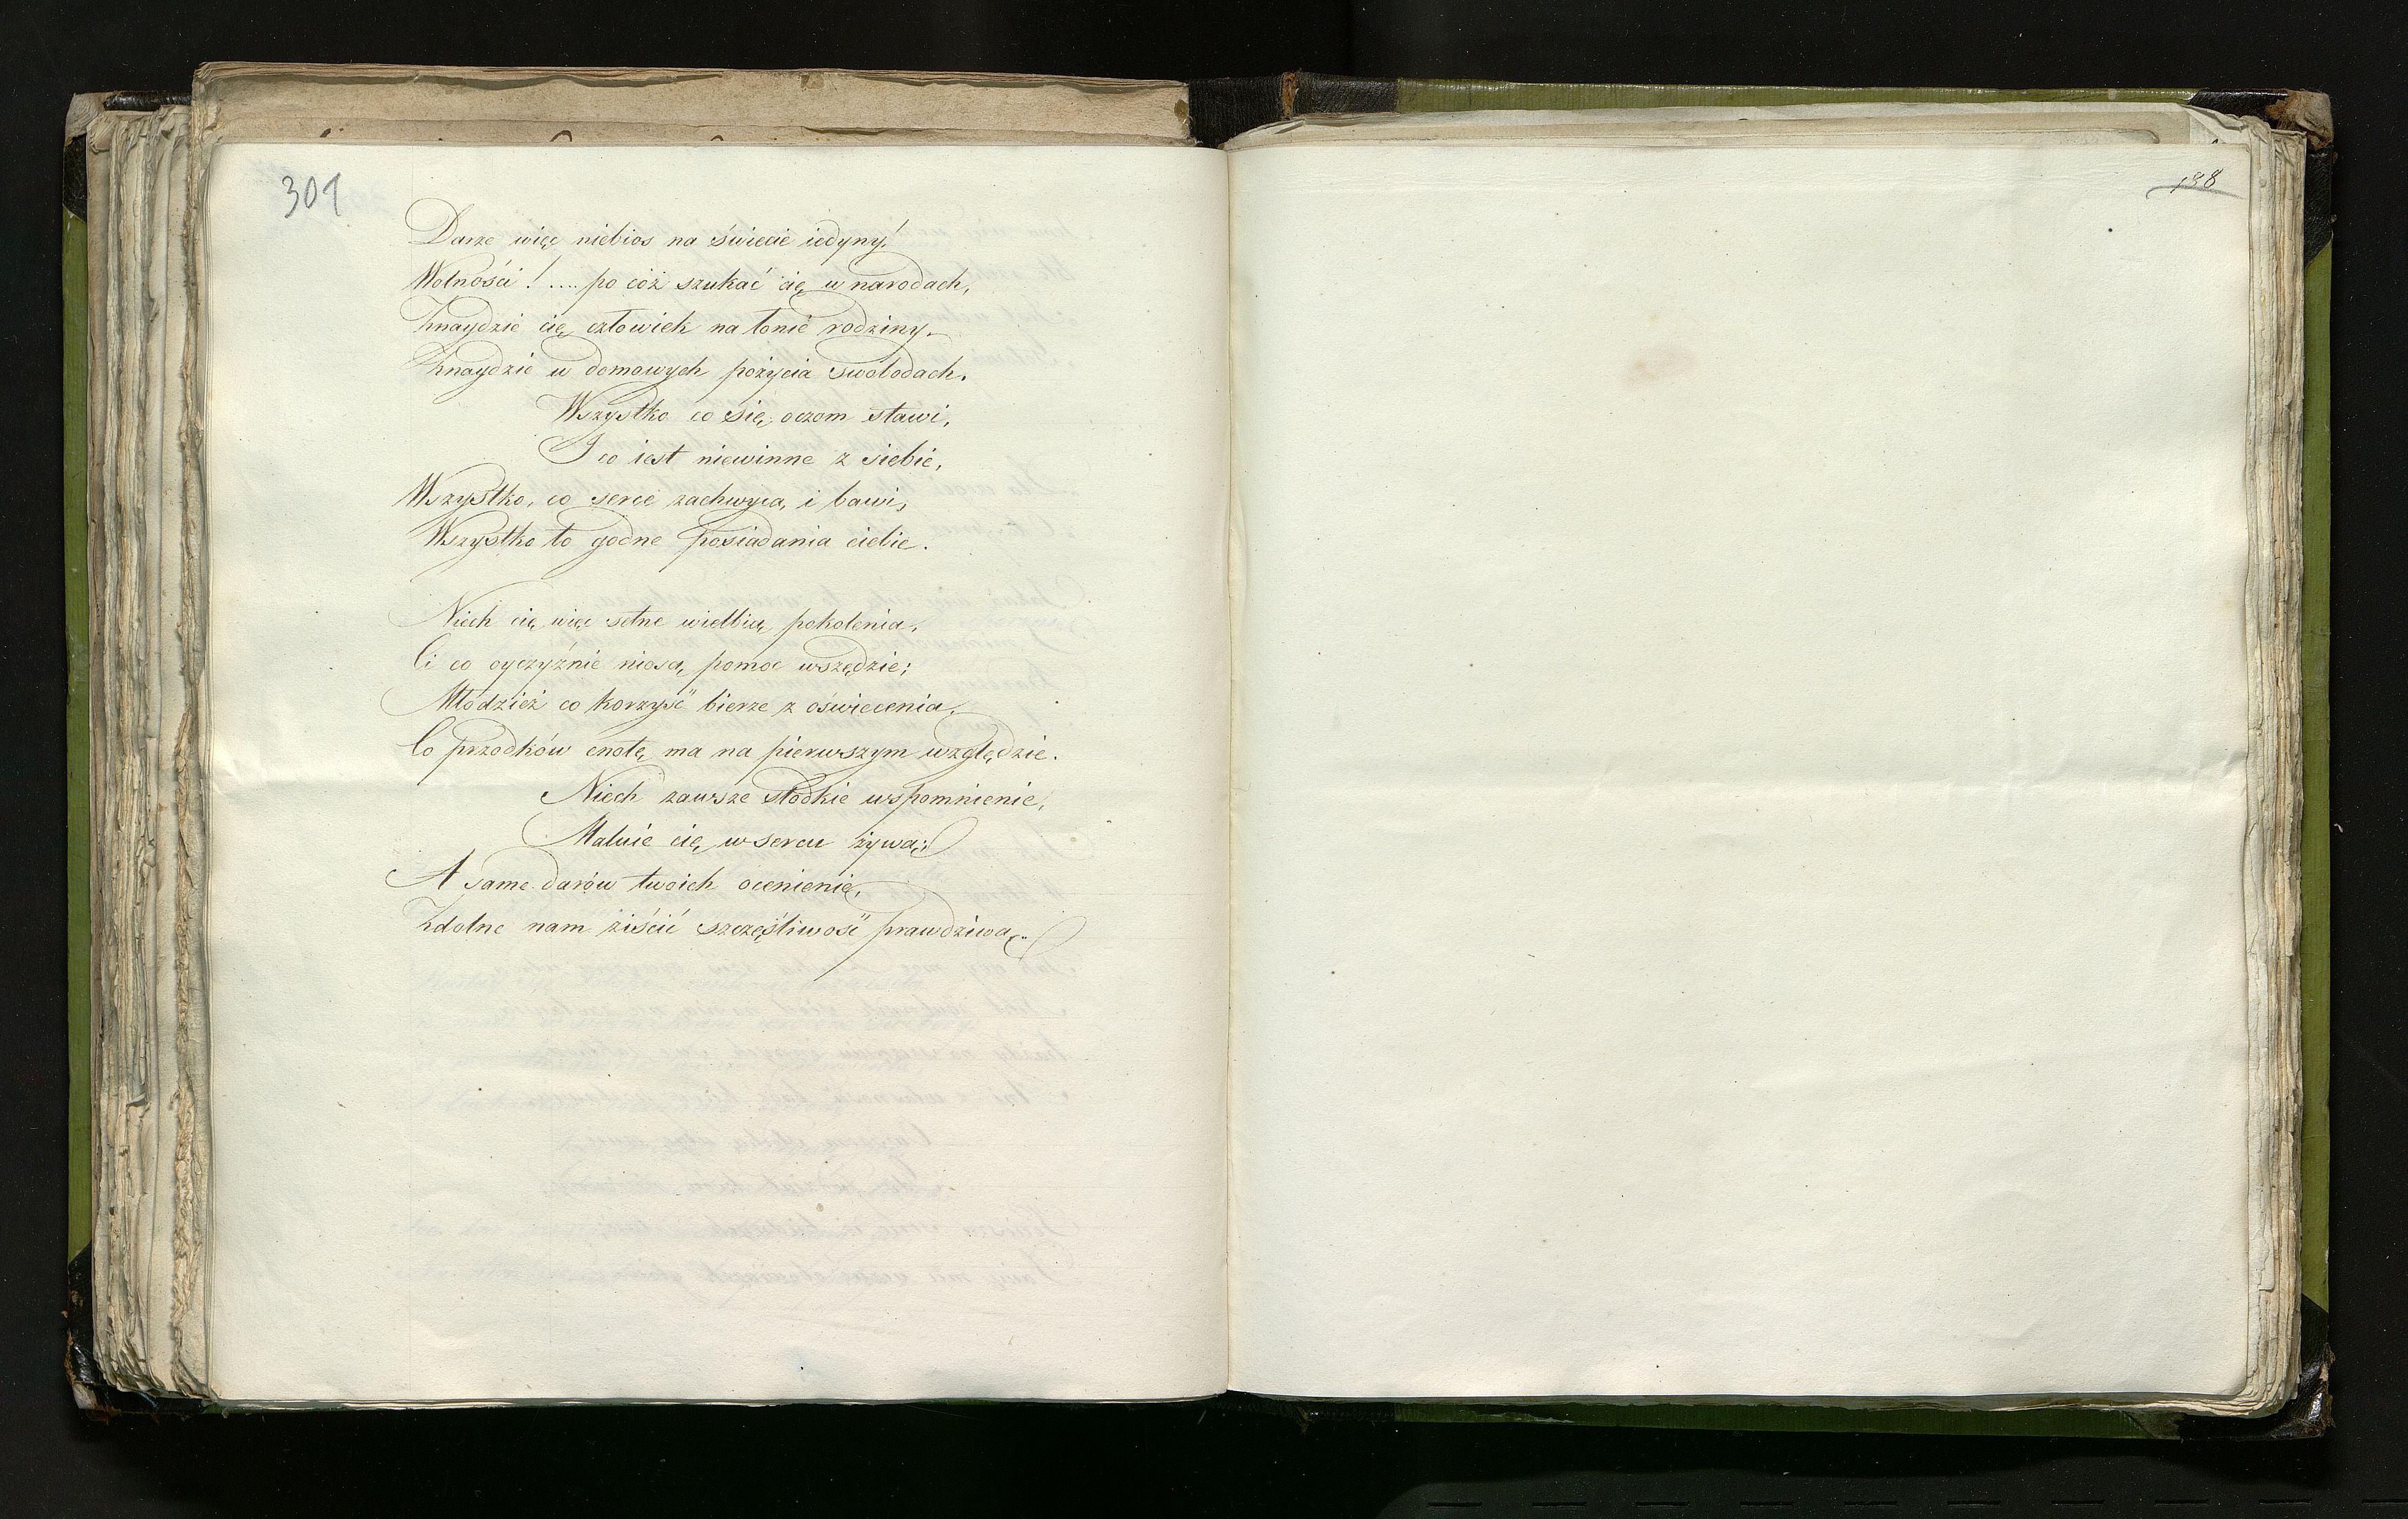 301
Darze więc niebios na świecie iedyny!
Wolności! .... po cóż szukać cię w narodach,
Znaydzie cię człowiek na łonie rodziny,
Znaydzie w domowych pożycia swobodach.
Wszystko co się oczom stawi,
I co iest niewinne z siebie,
Wszystko, co serce zachwyca, i bawi,
Wszystko to godne posiadania ciebie.
Niech cię więc setne wielbią pokolenia,
Ci co oyczyźnie niosą pomoc wszędzie;
Młodzież co korzyść bierze z oświecenia,
Co przodków cnotę ma na pierwszym względzie.
Niech zawsze słodkie wspomnienie,
Maluie cię w sercu żywą;
A same darów twoich ocenienie,
Zdolne nam ziścić szczęśliwość prawdziwą.
188